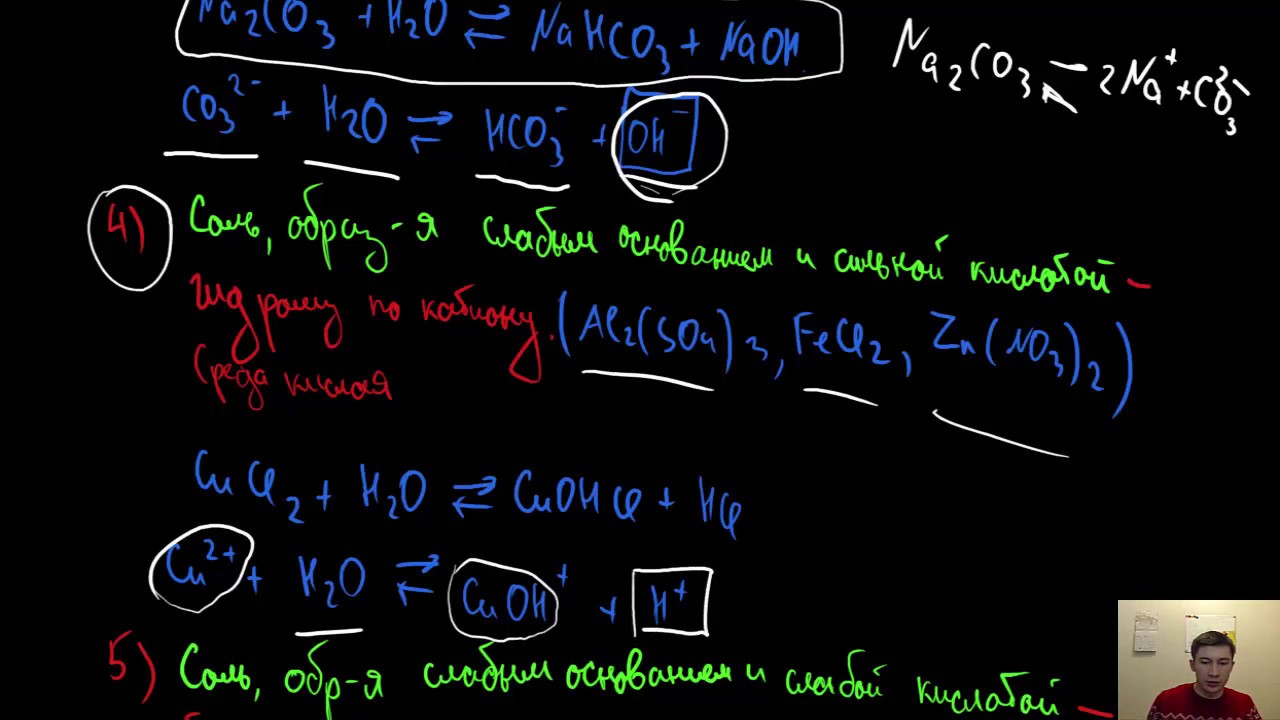 Na2CO3 + H2O ⇄ NaHCO3 + NaOH
Na2CO3 ⇄ 2Na⁺ + CO3²⁻
CO3²⁻ + H2O ⇄ HCO3⁻ + OH⁻
4) Соль, образ-я слабым основанием и сильной кислотой –
гидролиз по катиону. (Al2(SO4)3, FeCl2, Zn(NO3)2)
Среда кислая
CuCl2 + H2O ⇄ CuOHCl + HCl
Cu²⁺ + H2O ⇄ CuOH⁺ + H⁺
5) Соль, обр-я слабым основанием и слабой кислотой –